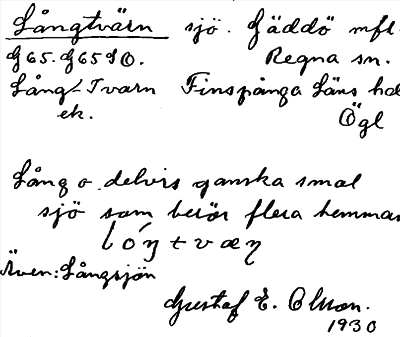 Långtvärn sjö. Gäddö mfl.
G65. G65SO. Regna sn.
Lång-Tvarn Finspånga läns hd
ek. Ögl
Lång o delvis ganska smal
sjö som berör flera hemman
Även: Långsjön
Gustaf E. Olsson.
1930